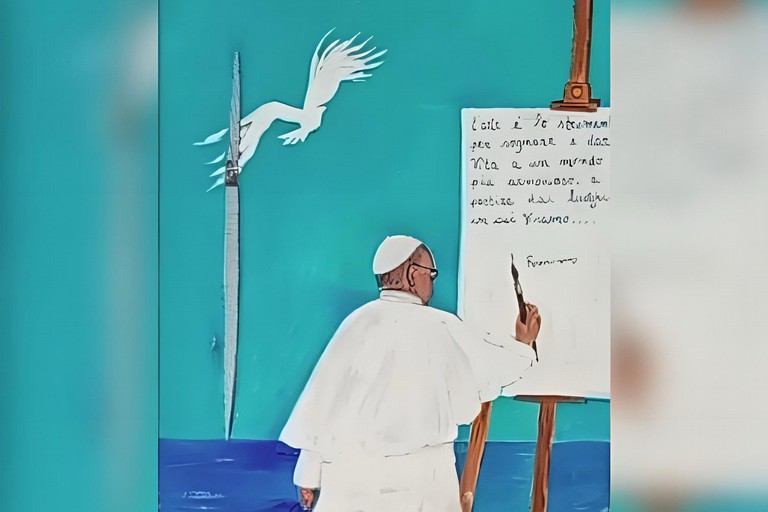 L'arte è lo strument
per sognare e dar
Vita a un mondo
più armonioso. a
partire dai luoghi
in cui Viviamo....